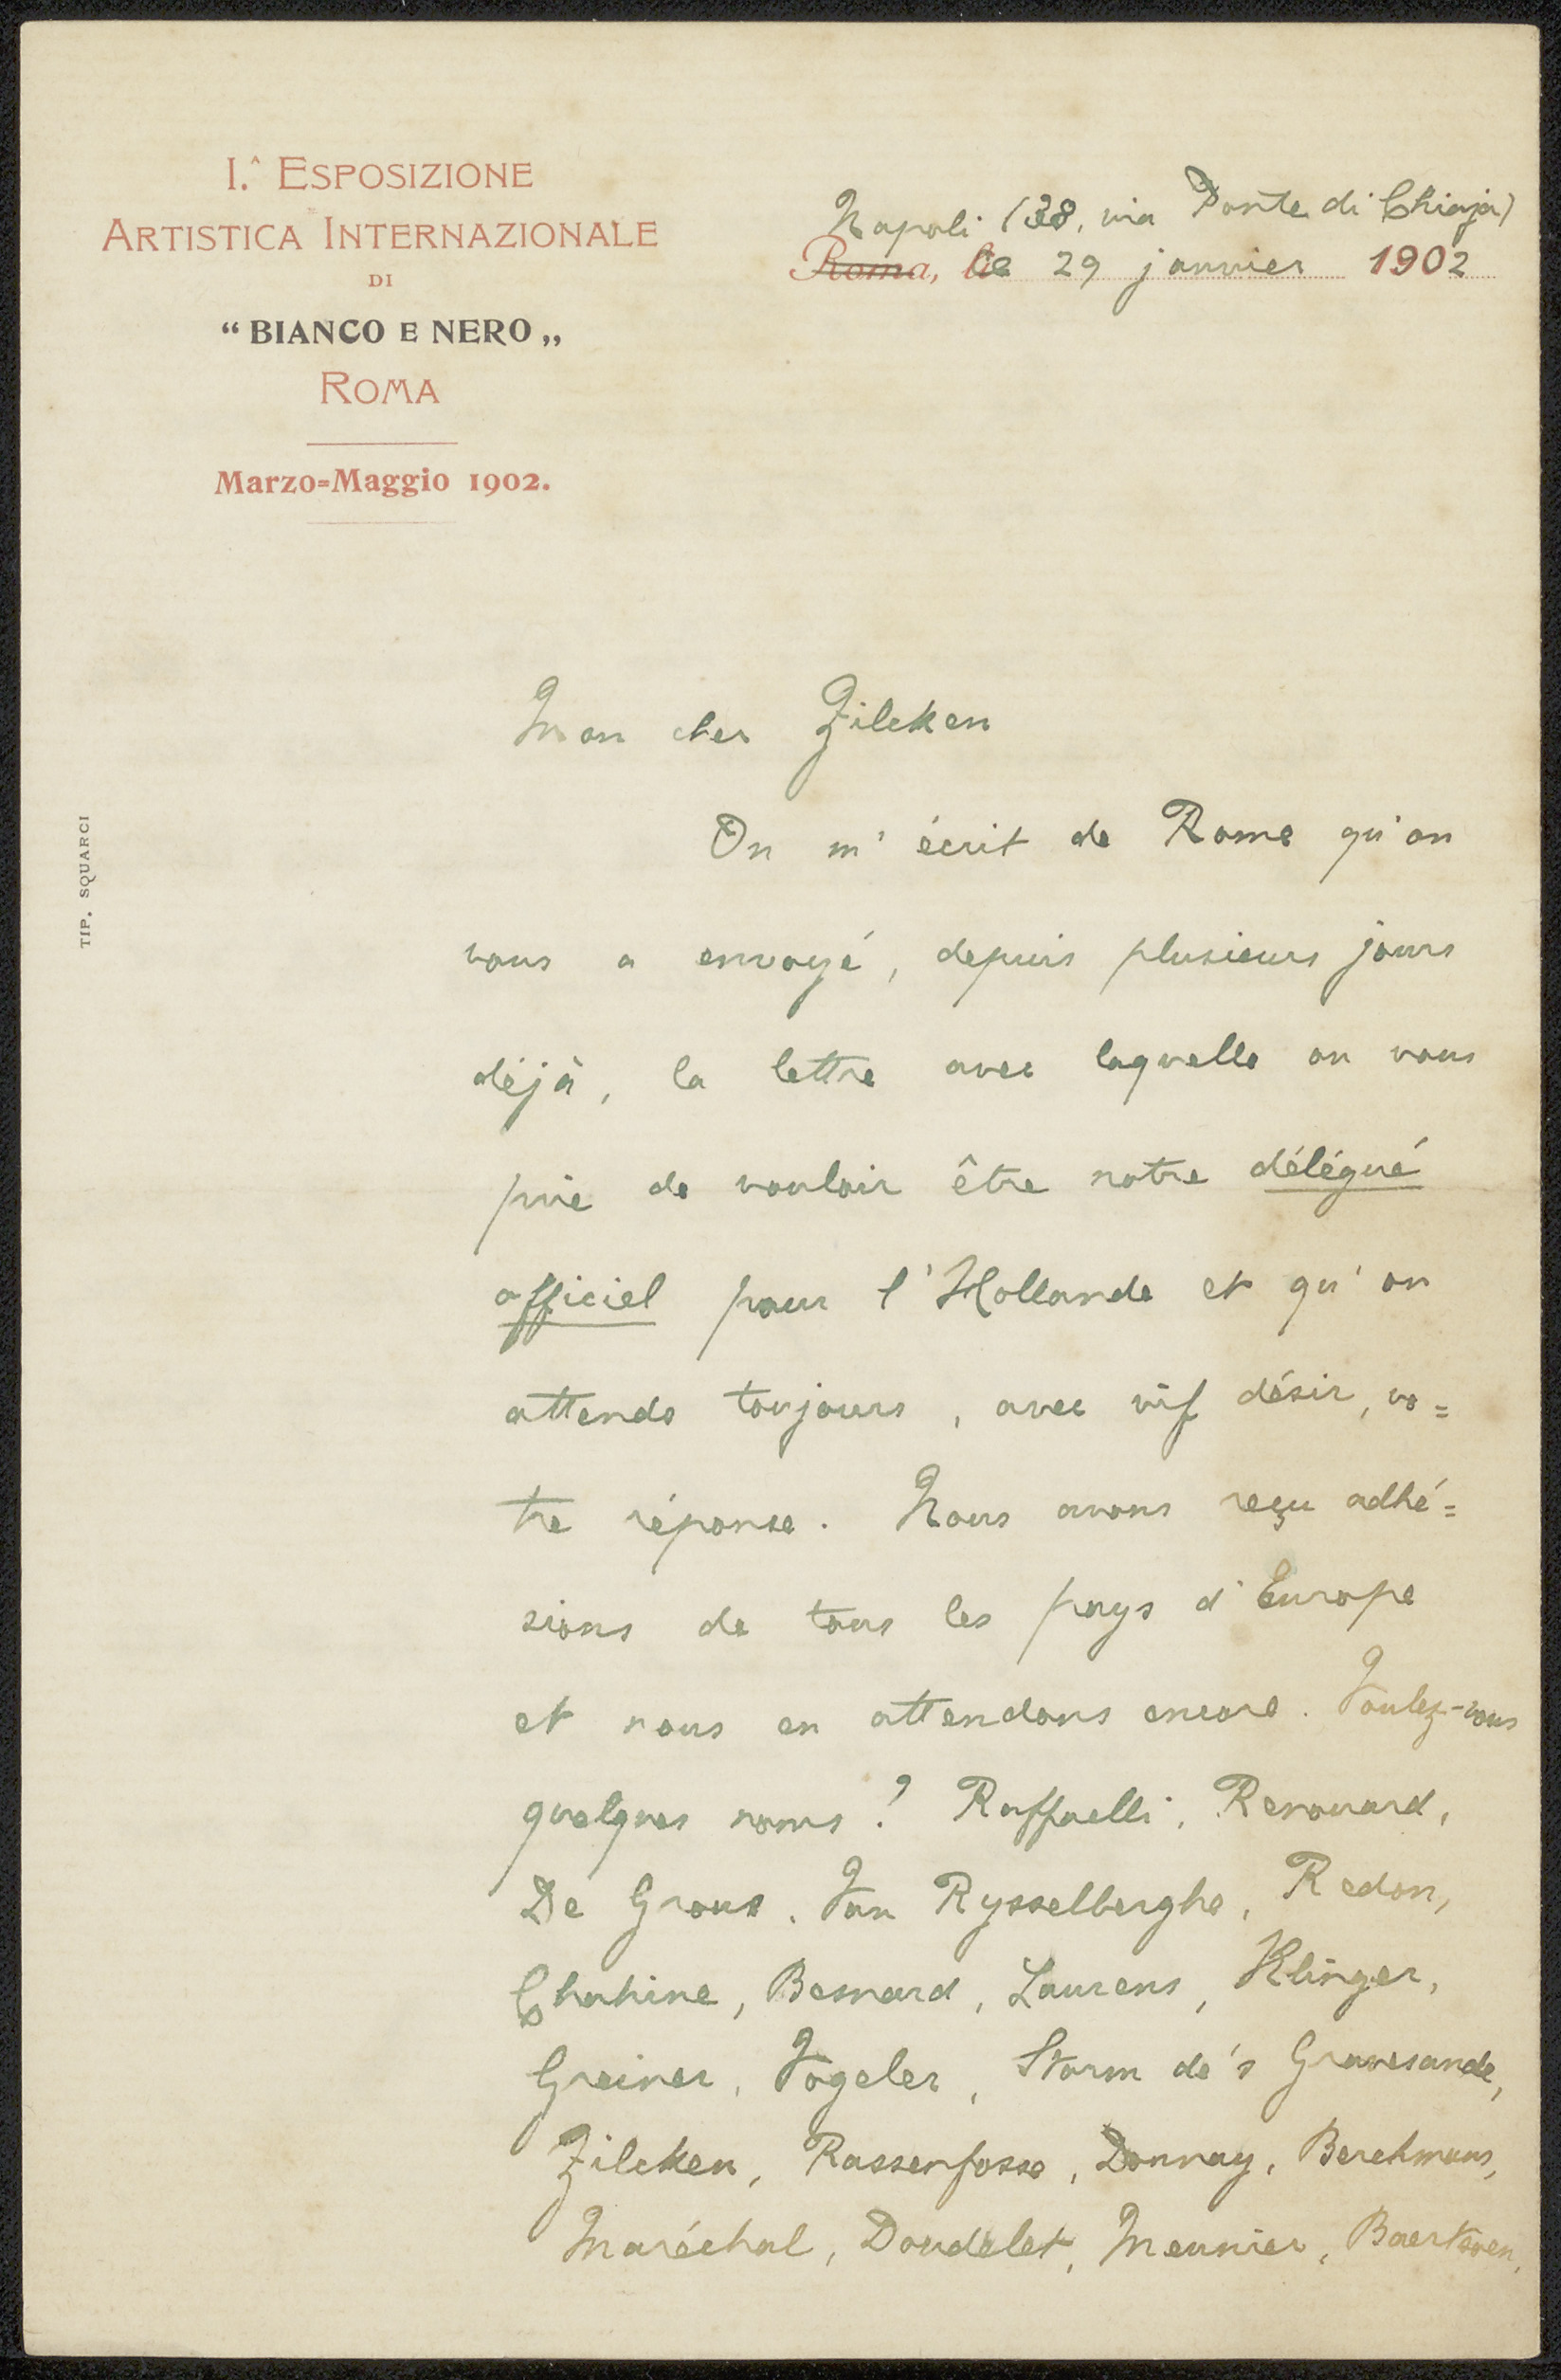 I.ᴬ ESPOSIZIONE
ARTISTICA INTERNAZIONALE
DI
“BIANCO E NERO„
ROMA
Marzo=Maggio 1902.
Napoli (38, via Ponte di Chiaja)
Roma, le 29 janvier 1902
TIP. SQUARCI
Mon cher Zilcken
On m'écrit de Rome qu'on
vous a envoyé, depuis plusieurs jours
déjà, la lettre avec laquelle on vous
prie de vouloir être notre délégué
officiel pour l'Hollande et qu'on
attende toujours, avec vif désir, vo=
tre réponse. Nous avons reçu adhé=
sions de tous les pays d'Europe
et nous en attendons encore. Voulez-vous
quelques noms? Raffaelli, Renouard,
De Groux, Van Rysselberghe, Redon,
Chahine, Besnard, Laurens, Klinger,
Greiner, Vogeler, Storm de's Gravesande,
Zilcken, Rassenfosse, Donnay, Berchmans,
Maréchal, Doudelet, Meunier, Baertsoen,